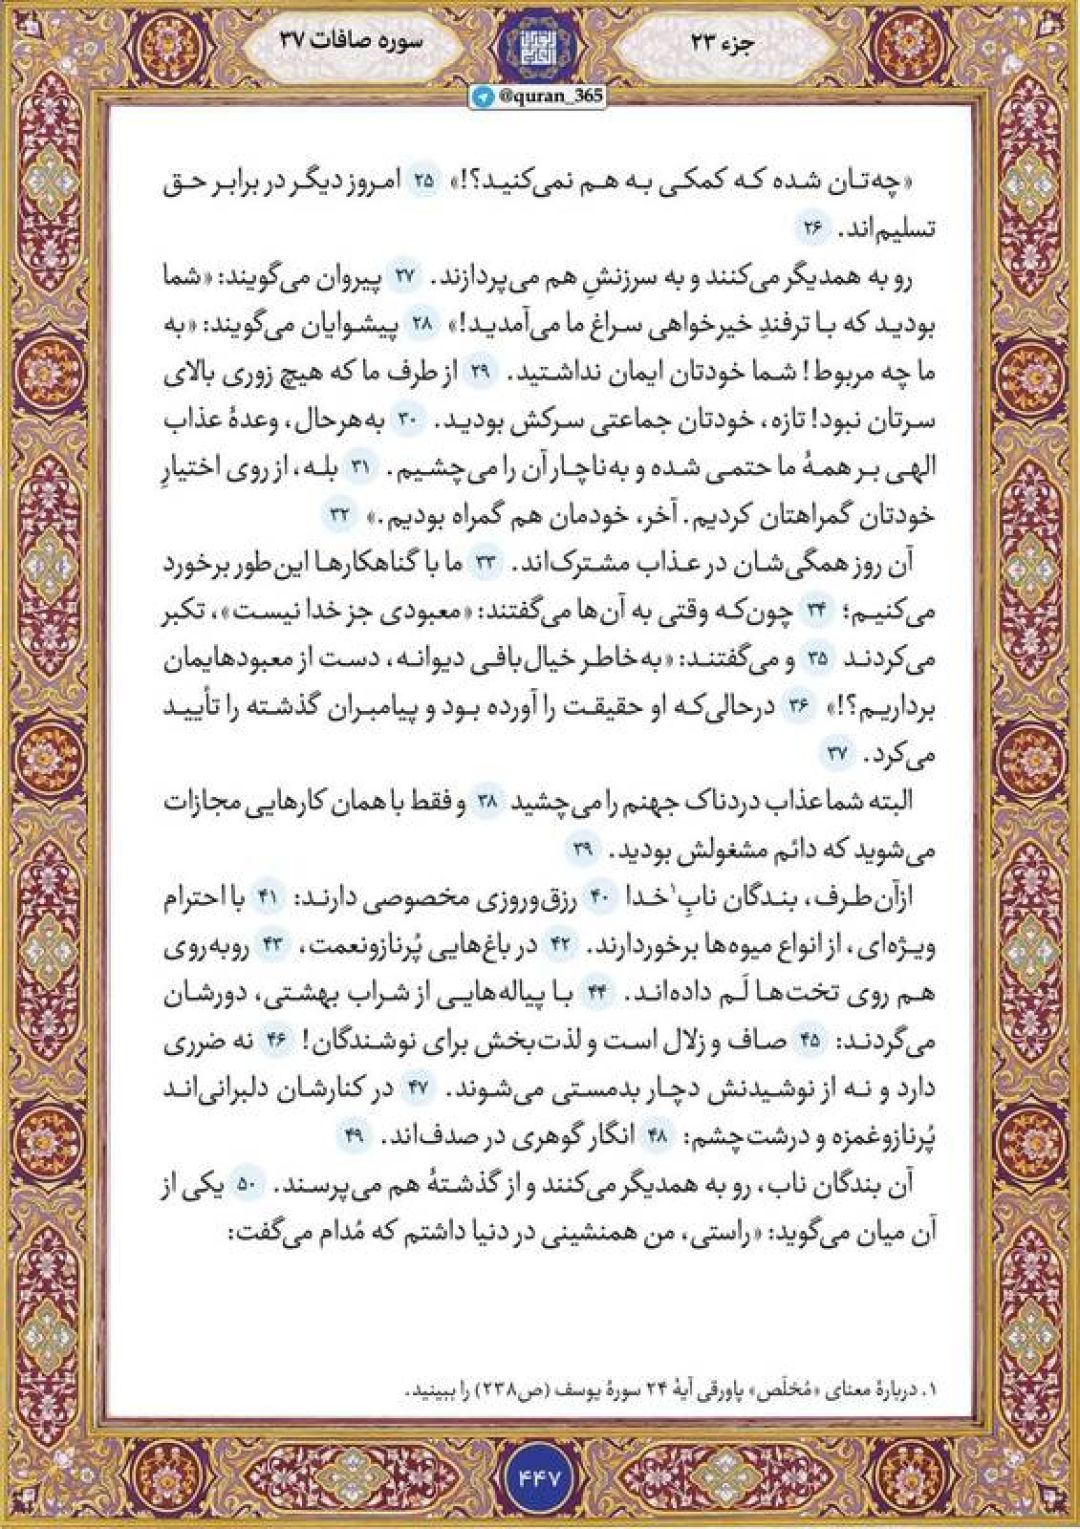 جزء ۲۳
سوره صافات ۳۷
@quran_365
«چه‌تان شده که کمکی به هم نمی‌کنید؟!» ۲۵ امروز دیگر در برابر حق
تسلیم‌اند. ۲۶
رو به همدیگر می‌کنند و به سرزنشِ هم می‌پردازند. ۲۷ پیروان می‌گویند: «شما
بودید که با ترفندِ خیرخواهی سراغ ما می‌آمدید!» ۲۸ پیشوایان می‌گویند: «به
ما چه مربوط! شما خودتان ایمان نداشتید. ۲۹ از طرف ما که هیچ زوری بالای
سرتان نبود! تازه، خودتان جماعتی سرکش بودید. ۳۰ به‌هرحال، وعدهٔ عذاب
الهی بر همهٔ ما حتمی شده و به‌ناچار آن را می‌چشیم. ۳۱ بله، از روی اختیارِ
خودتان گمراهتان کردیم. آخر، خودمان هم گمراه بودیم.» ۳۲
آن روز همگی‌شان در عذاب مشترک‌اند. ۳۳ ما با گناهکارها این‌طور برخورد
می‌کنیم؛ ۳۴ چون‌که وقتی به آن‌ها می‌گفتند: «معبودی جز خدا نیست»، تکبر
می‌کردند ۳۵ و می‌گفتند: «به‌خاطر خیال‌بافی دیوانه، دست از معبودهایمان
برداریم؟!» ۳۶ درحالی‌که او حقیقت را آورده بود و پیامبران گذشته را تأیید
می‌کرد. ۳۷
البته شما عذاب دردناک جهنم را می‌چشید ۳۸ و فقط با همان کارهایی مجازات
می‌شوید که دائم مشغولش بودید. ۳۹
ازآن‌طرف، بندگان نابِ۱ خدا ۴۰ رزق‌وروزی مخصوصی دارند: ۴۱ با احترام
ویژه‌ای، از انواع میوه‌ها برخوردارند. ۴۲ در باغ‌هایی پُرنازونعمت، ۴۳ روبه‌روی
هم روی تخت‌ها لَم داده‌اند. ۴۴ با پیاله‌هایی از شراب بهشتی، دورشان
می‌گردند: ۴۵ صاف و زلال است و لذت‌بخش برای نوشندگان! ۴۶ نه ضرری
دارد و نه از نوشیدنش دچار بدمستی می‌شوند. ۴۷ در کنارشان دلبرانی‌اند
پُرنازوغمزه و درشت‌چشم: ۴۸ انگار گوهری در صدف‌اند. ۴۹
آن بندگان ناب، رو به همدیگر می‌کنند و از گذشتهٔ هم می‌پرسند. ۵۰ یکی از
آن میان می‌گوید: «راستی، من همنشینی در دنیا داشتم که مُدام می‌گفت:
۱. دربارهٔ معنای «مُخلَص» پاورقی آیهٔ ۲۴ سورهٔ یوسف (ص۲۳۸) را ببینید.
۴۴۷